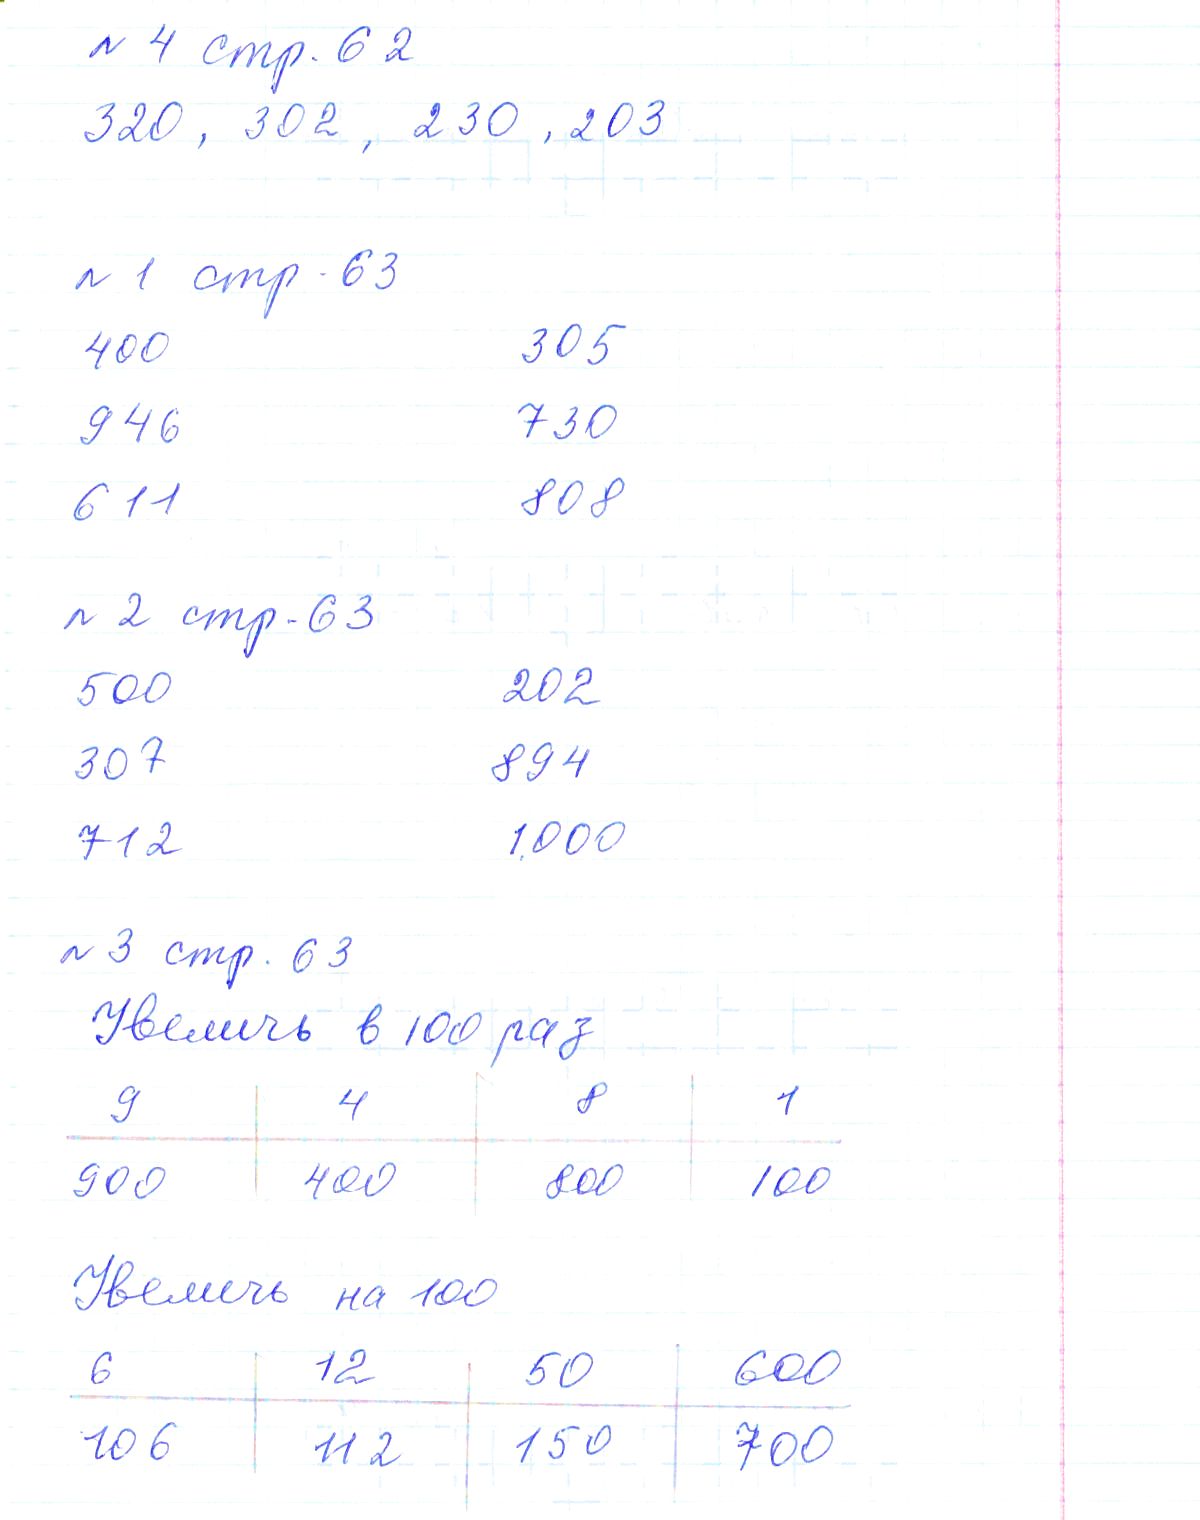 № 4 стр. 62
320, 302, 230, 203
№ 1 стр. 63
400 305
946 730
611 808
№ 2 стр. 63
500 202
307 894
712 1000
№ 3 стр. 63
Увеличь в 100 раз
9 4 8 1
900 400 800 100
Увеличь на 100
6 12 50 600
106 112 150 700